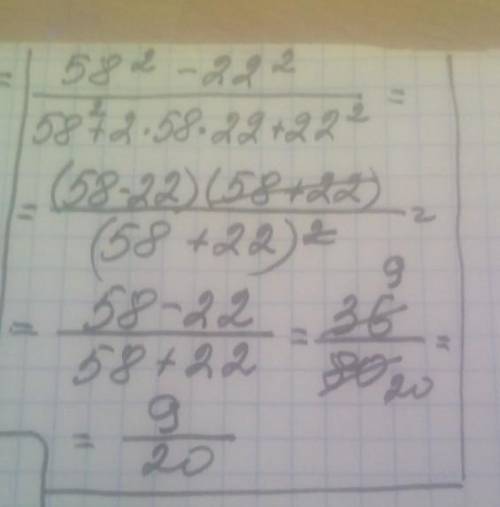 = (58² - 22²)/(58² + 2·58·22 + 22²) =
= (58-22)(58+22)/(58+22)² =
= (58-22)/(58+22) = 36/80 9/20 =
= 9/20